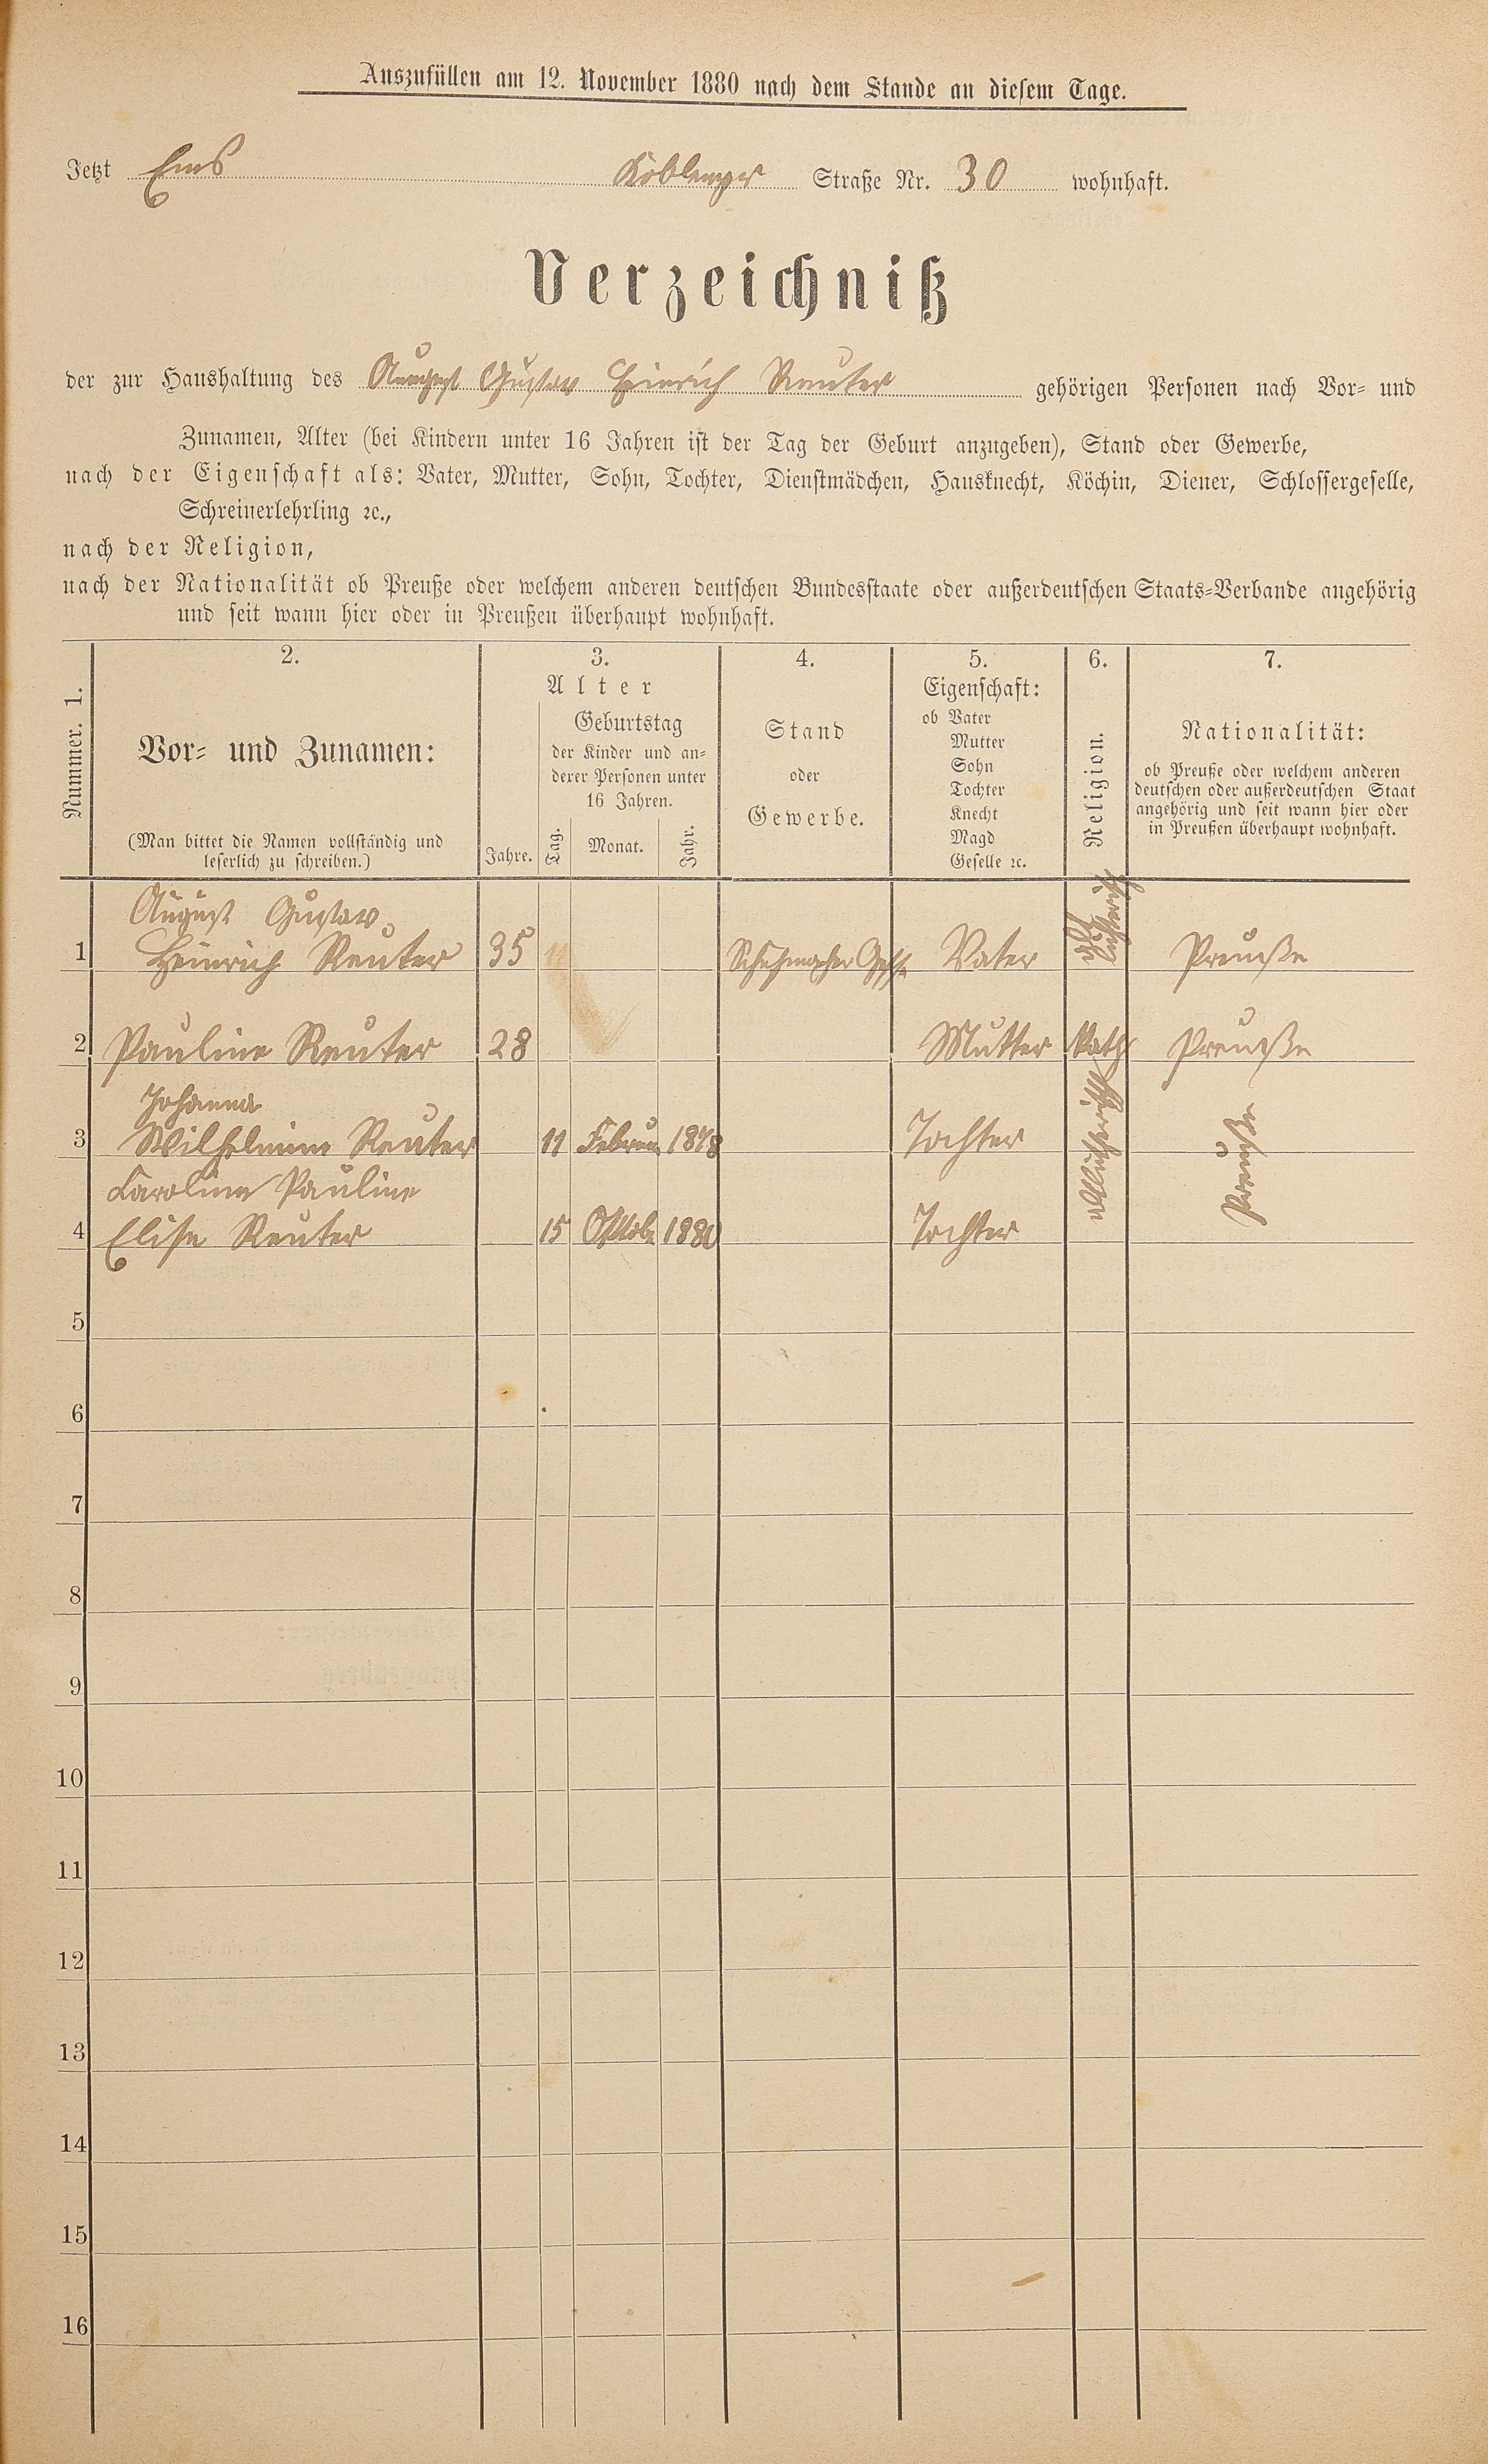 Auszufüllen am 12. November 1880 nach dem Stande an diesem Tage.
Jetzt Ems Koblenzer Straße Nr. 30 wohnhaft.
Verzeichniß
der zur Haushaltung des August Gustav Heinrich Reuter gehörigen Personen nach Vor- und
Zunamen, Alter (bei Kindern unter 16 Jahren ist der Tag der Geburt anzugeben), Stand oder Gewerbe,
nach der Eigenschaft als: Vater, Mutter, Sohn, Tochter, Dienstmädchen, Hausknecht, Köchin, Diener, Schlossergeselle,
Schreinerlehrling ꝛc.,
nach der Religion,
nach der Nationalität ob Preuße oder welchem anderen deutschen Bundesstaate oder außerdeutschen Staats-Verbande angehörig
und seit wann hier oder in Preußen überhaupt wohnhaft.
Nummer. 1.
2.
Vor- und Zunamen:
(Man bittet die Namen vollständig und
leserlich zu schreiben.)
3.
Alter
Jahre.
Geburtstag
der Kinder und an-
derer Personen unter
16 Jahren.
Tag.
Monat.
Jahr.
4.
Stand
oder
Gewerbe.
5.
Eigenschaft:
ob Vater
Mutter
Sohn
Tochter
Knecht
Magd
Geselle ꝛc.
6.
Religion.
7.
Nationalität:
ob Preuße oder welchem anderen
deutschen oder außerdeutschen Staat
angehörig und seit wann hier oder
in Preußen überhaupt wohnhaft.
August Gustav
1 Heinrich Reuter 35 Schuhmacher Vater Preuße
2 Pauline Reuter 28 Mutter Kath Preuße
Johanna
3 Wilhelmine Reuter 11 Februar 1878 Tochter
Carolina Pauline
4 Elise Reuter 15 Oktob 1880 Tochter
Preuße
5
6
7
8
9
10
11
12
13
14
15
16